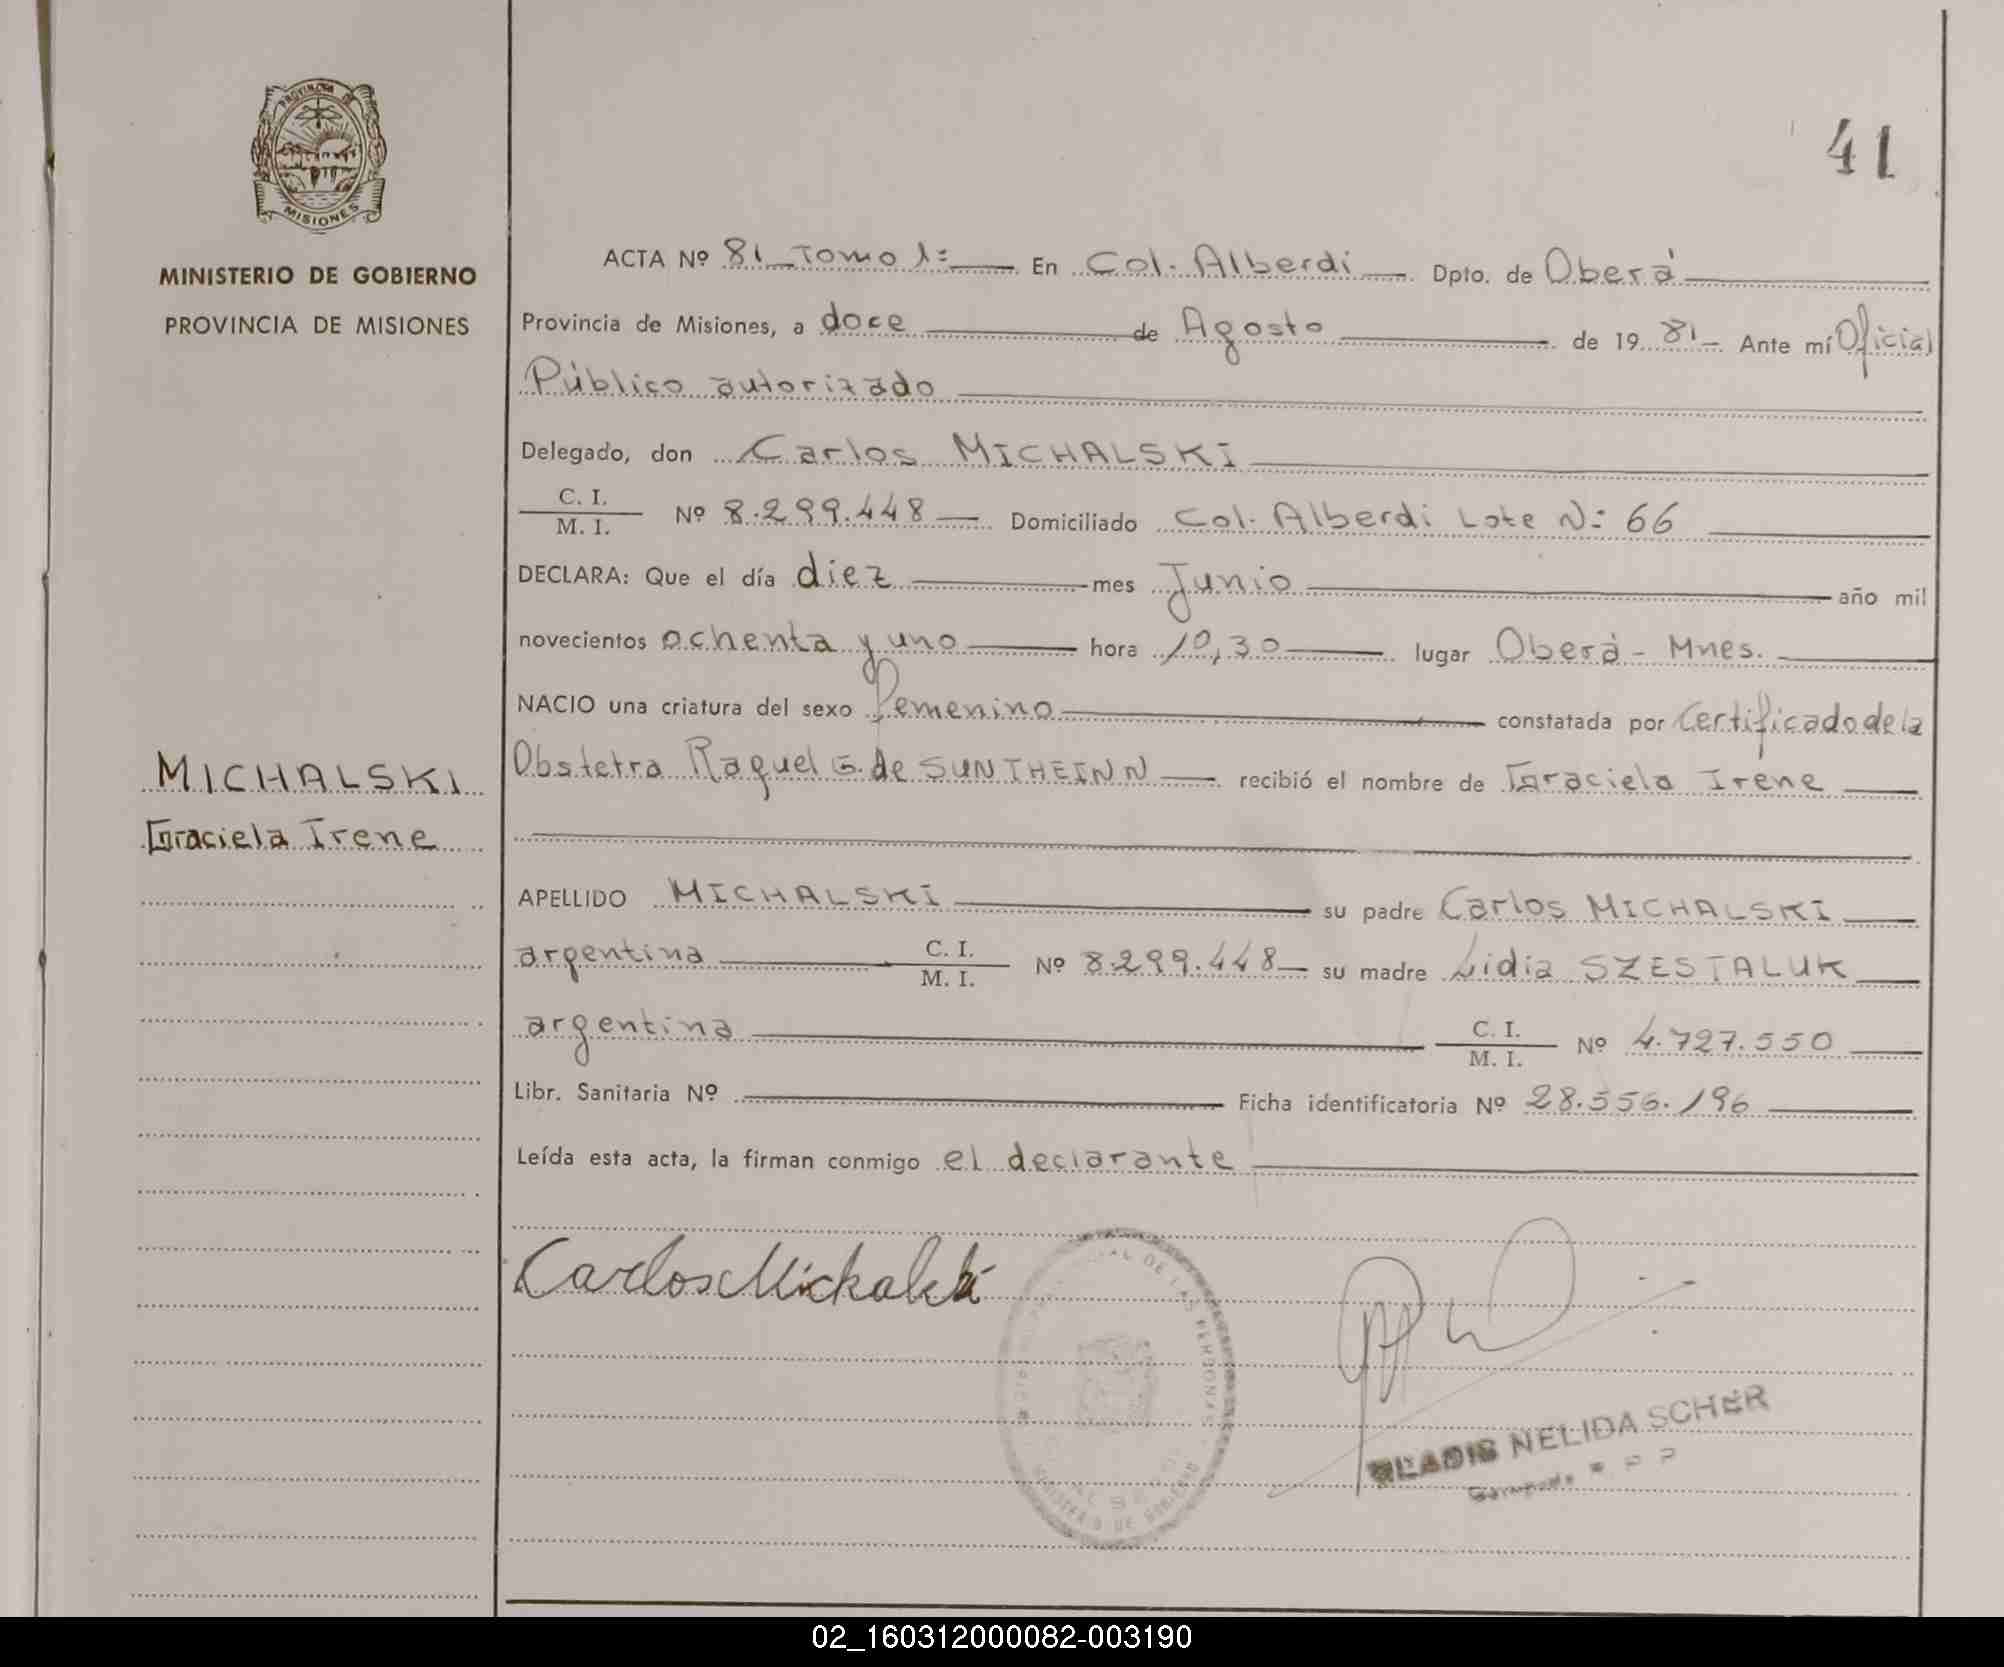 PROVINCIA DE
MISIONES
MINISTERIO DE GOBIERNO
PROVINCIA DE MISIONES
41
ACTA Nº 81 Tomo 1º En Col. Alberdi Dpto. de Oberá
Provincia de Misiones, a doce de Agosto de 19 81 Ante mí Oficial
Público autorizado
Delegado, don Carlos MICHALSKI
C. I.
M. I. Nº 8.299.448 Domiciliado Col. Alberdi Lote Nº 66
DECLARA: Que el día diez mes Junio año mil
novecientos ochenta y uno hora 10,30 lugar Oberá - Mnes.
NACIO una criatura del sexo femenino constatada por Certificado de la
Obstetra Raquel G. de SUNTHEINN recibió el nombre de Graciela Irene
MICHALSKI
Graciela Irene
APELLIDO MICHALSKI su padre Carlos MICHALSKI
argentina C. I.
M. I. Nº 8.299.448 su madre Lidia SZESTALUK
argentina C. I.
M. I. Nº 4.727.550
Libr. Sanitaria Nº Ficha identificatoria Nº 28.556.196
Leída esta acta, la firman conmigo el declarante
Carlos Michalski
DE LAS PERSONAS
MINISTERIO DE GOBIERNO
NELIDA SCHER
02_160312000082-003190